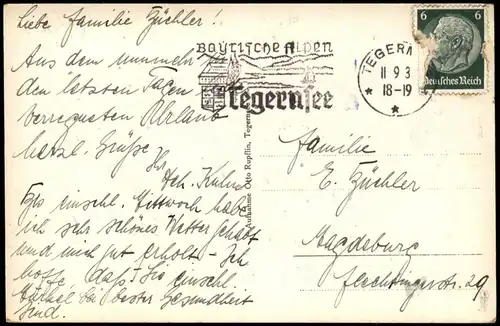 Liebe Familie Züchler!
Aus dem nunmehr
den letzten Tagen
verregneten Urlaub
herzl. Grüße Ihr
Joh. Kuhn
Bis einschl. Mittwoch habe
ich sehr schönes Wetter gehabt
und mich gut erholt – Ich
hoffe, daß Sie einschl.
bei bester Gesundheit
sind.
Bayrische Alpen
Tegernsee
TEGERN
11 9 3
18-19
6 6
Deutsches Reich
Aufnahme Otto Rupflin, Tegern
Familie
E. Züchler
Magdeburg
29